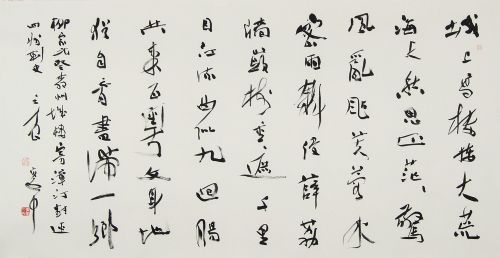 城上高樓接大荒
海天愁思正茫茫驚
風亂颭芙蓉水
密雨斜侵薜荔
牆嶺樹重遮千里
目江流曲似九迴腸
共來百越文身地
猶自音書滯一鄉
柳宗元登柳州城樓寄漳汀封連
四州刺史